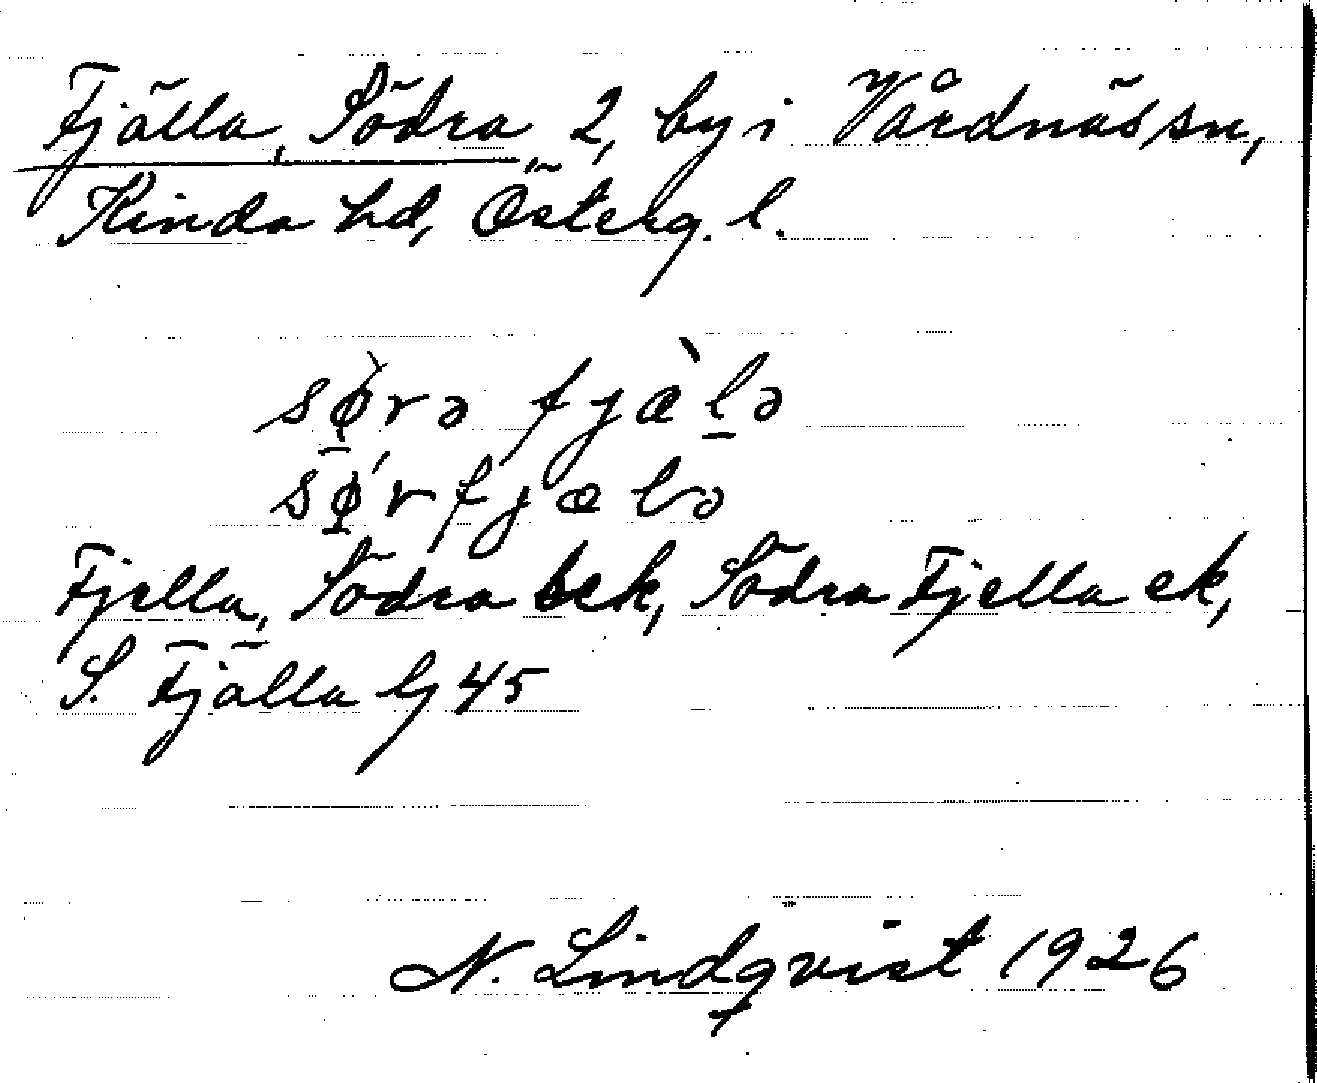 Fjälla, Södra 2, by i Vårdnäs sn,
Kinda hd, Österg. l.
sø̀rə fjæ̀l̠ə
sǿ̠rfjælə
Fjella, Södra bek, Södra Fjella ek,
S. Fjälla lj 45
N. Lindqvist 1926